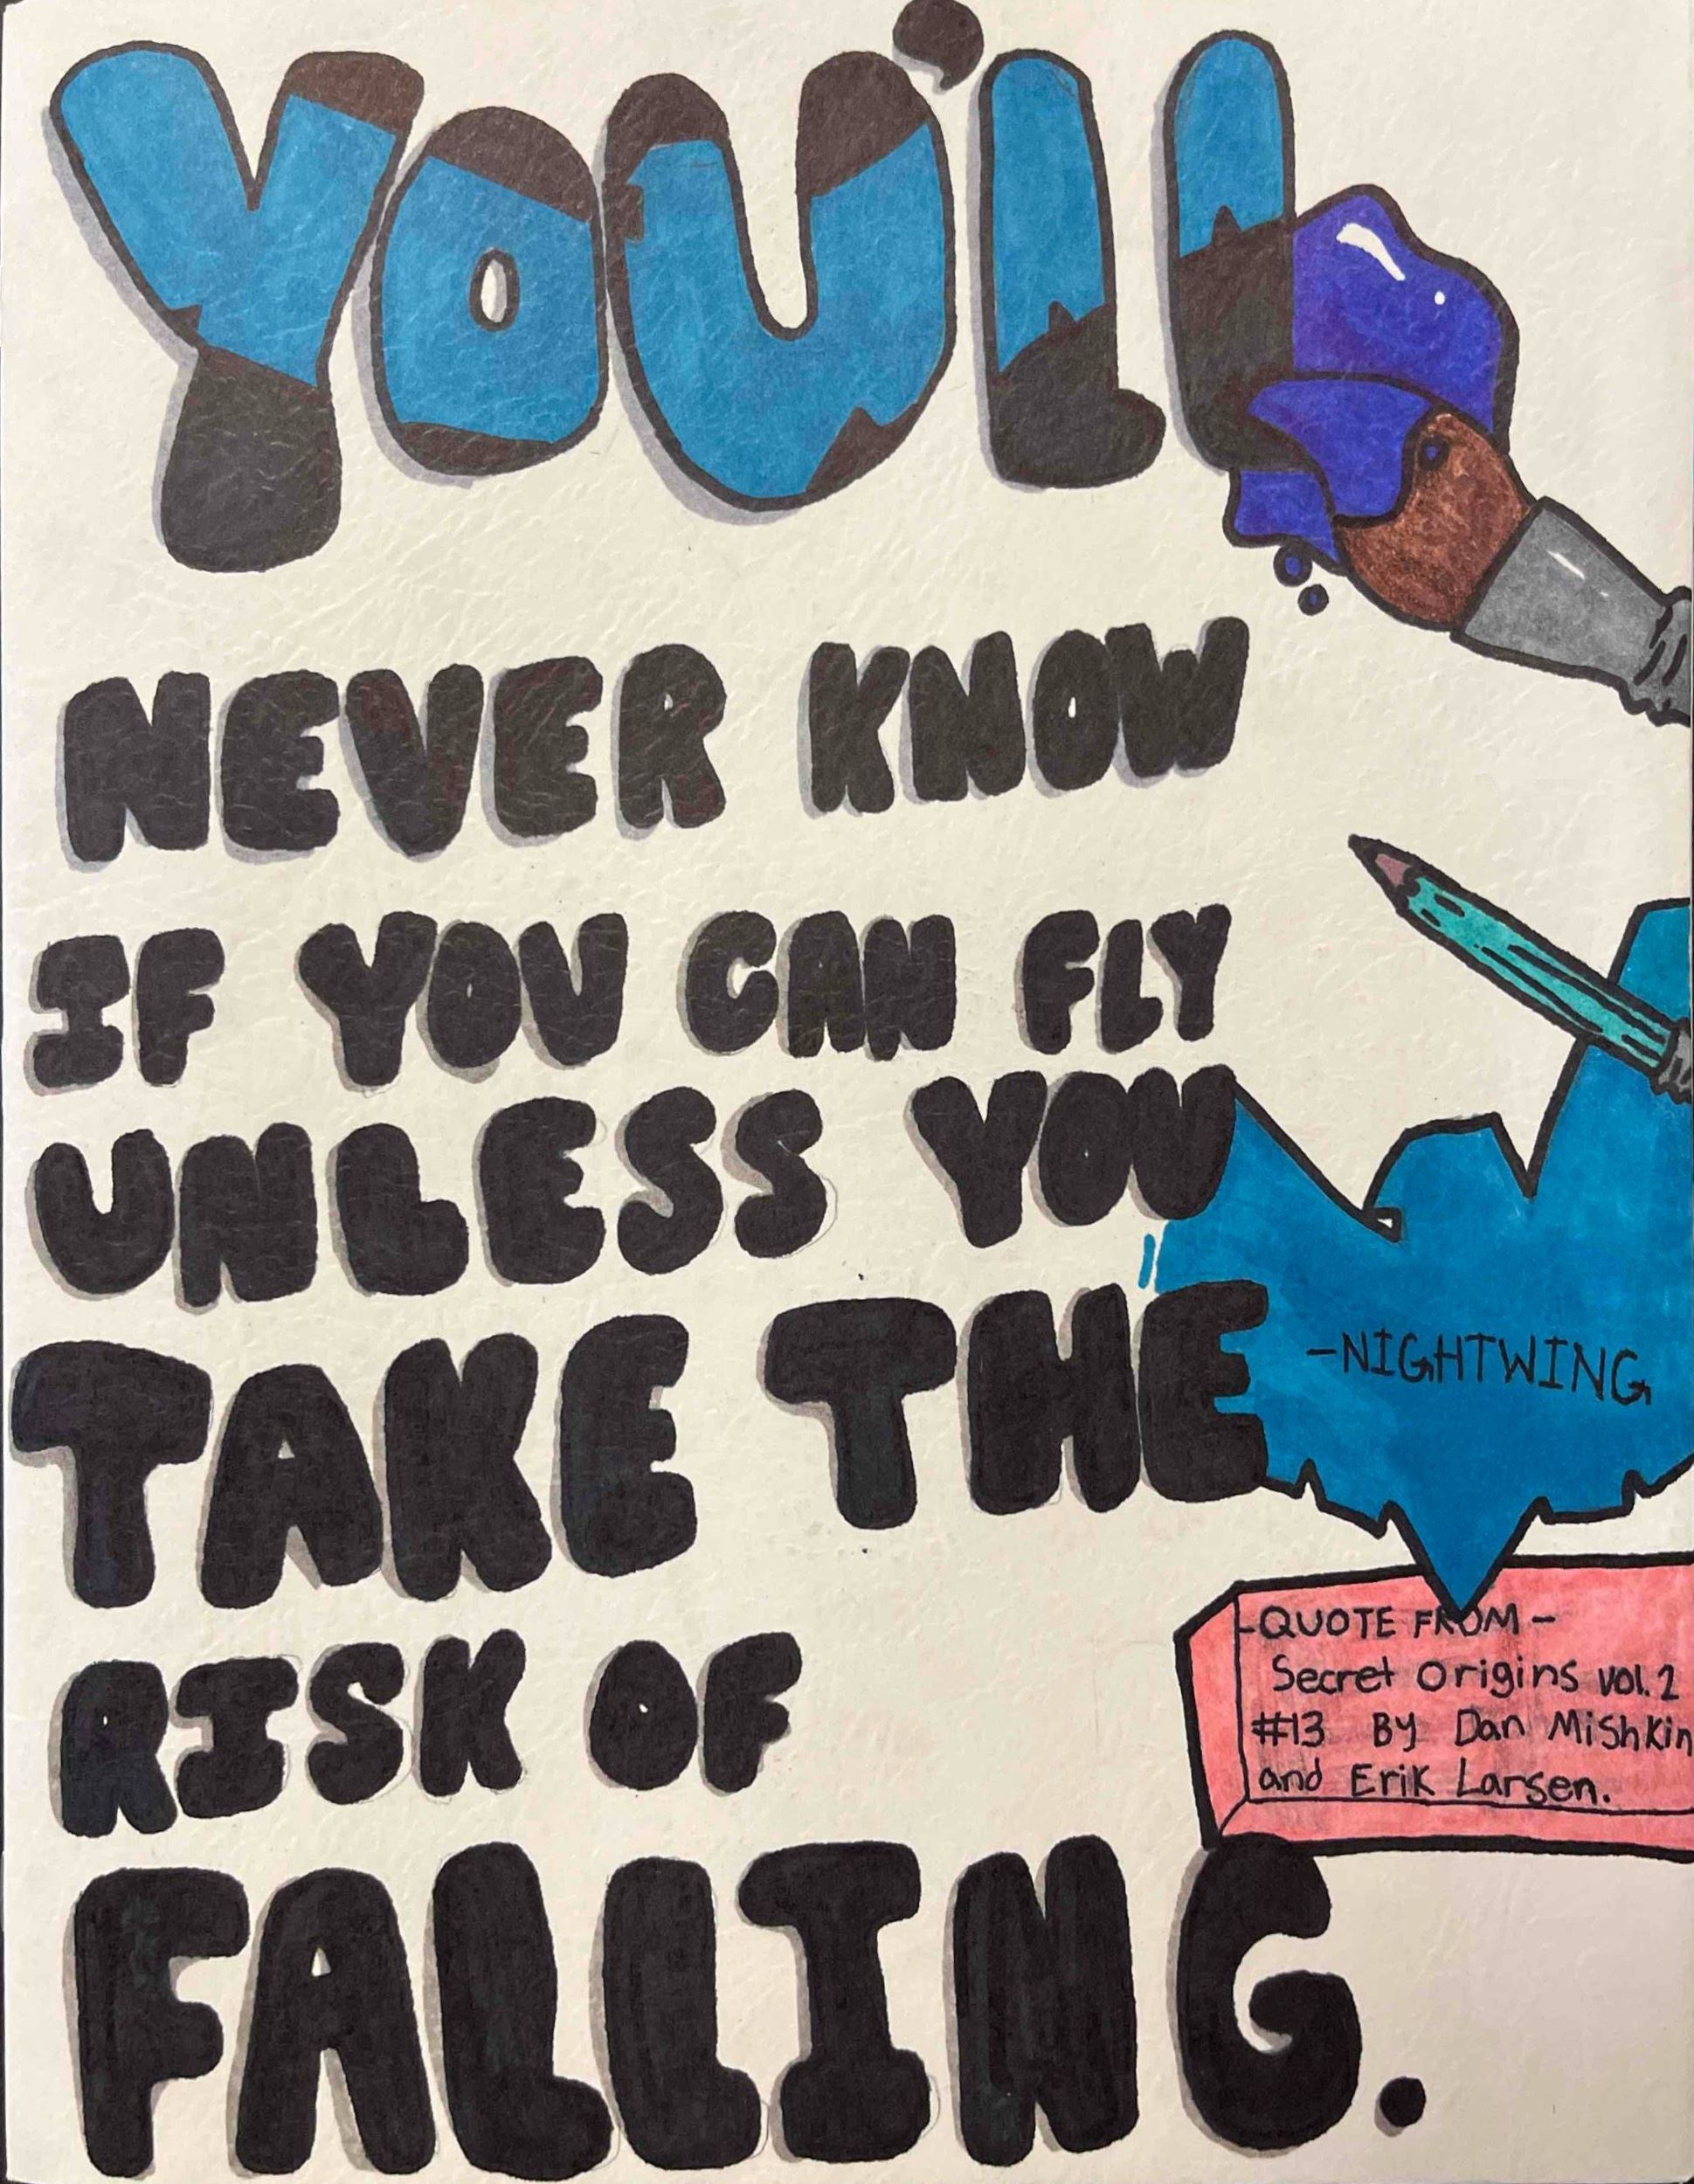 YOU'LL
NEVER KNOW
IF YOU CAN FLY
UNLESS YOU
TAKE THE
RISK OF
FALLING.
-NIGHTWING
-QUOTE FROM-
Secret Origins vol. 2
#13 By Dan Mishkin
and Erik Larsen.